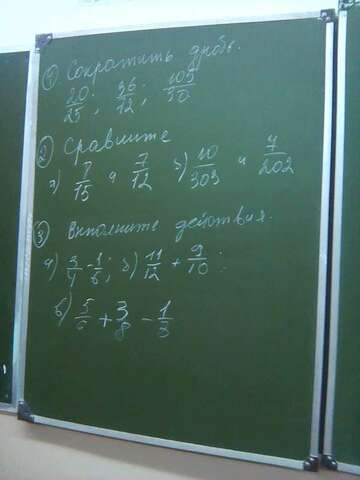 1) Сократить дробь.
20/25; 36/12; 105/30
2) Сравните
а) 7/15 и 7/12 б) 10/303 и 7/202
3) Выполните действия.
а) 3/4 - 1/6; б) 11/12 + 9/10;
в) 5/6 + 3/8 - 1/3